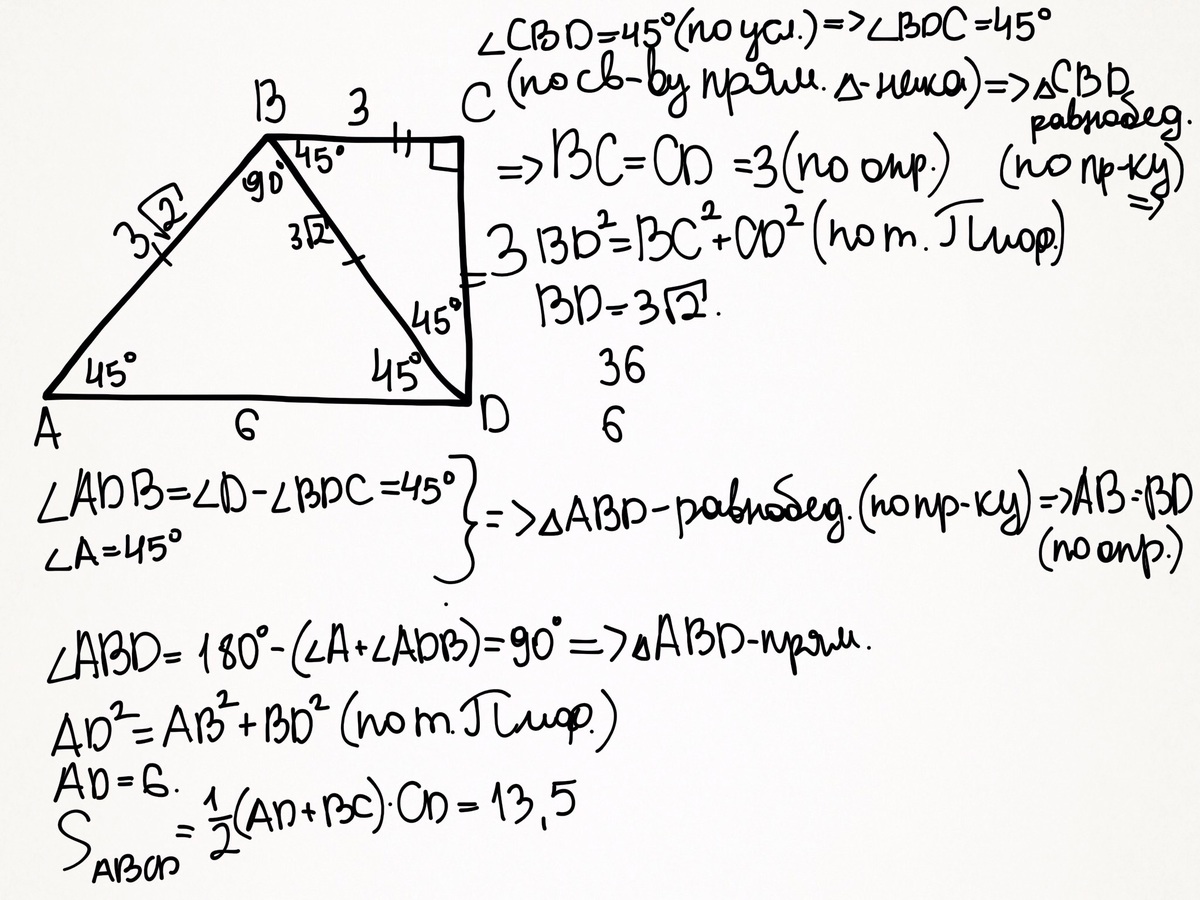 B 3 C
45°
90°
3√2
3√2
3
45°
45°
45°
A 6 D
∠CBD=45°(по усл.)=>∠BDC=45°
(по св-ву прям. Δ-ника)=>ΔCBD
равнобед.
=>BC=CD=3(по опр.) (по пр-ку)
=>
BD²=BC²+CD²(по т. Пифор.)
BD=3√2.
36
6
∠ADB=∠D-∠BDC=45°
∠A=45°
}=>ΔABD-равнобед.(по пр-ку)=>AB=BD
(по опр.)
∠ABD=180°-(∠A+∠ADB)=90°=>ΔABD-прям.
AD²=AB²+BD²(по т. Пифор.)
AD=6.
S_ABCD=1/2(AD+BC)·CD=13,5